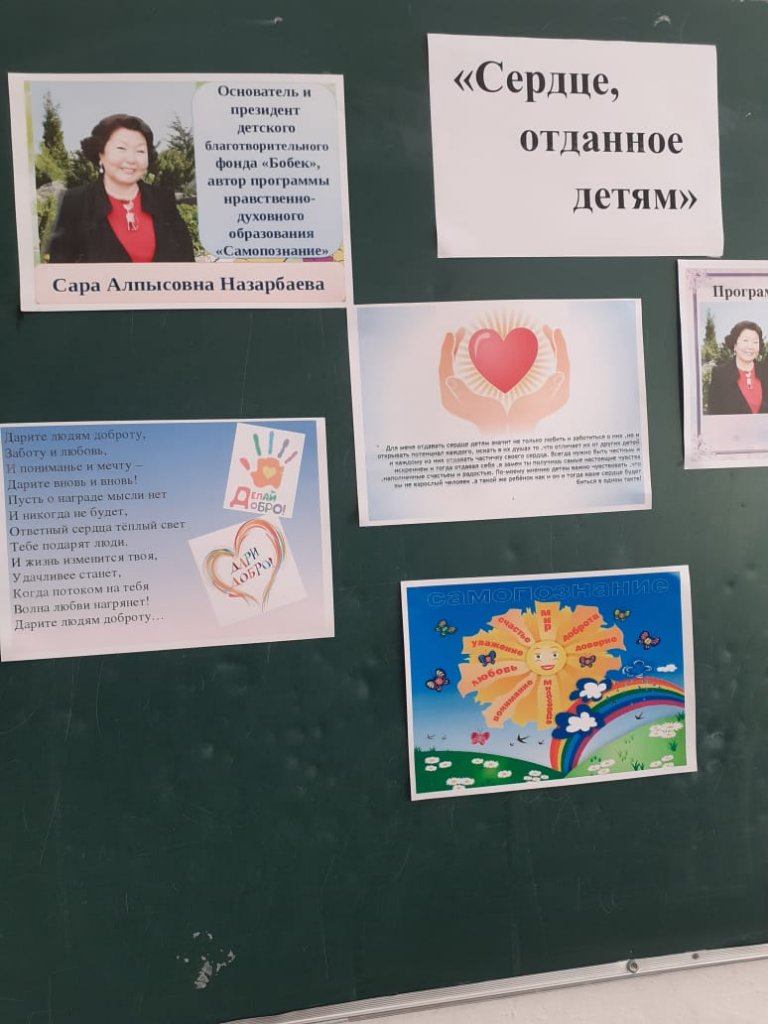 Основатель и
президент
детского
благотворительного
фонда «Бобек»,
автор программы
нравственно-
духовного
образования
«Самопознание»
Сара Алпысовна Назарбаева
«Сердце,
отданное
детям»
Програм
Для меня отдавать сердце детям значит не только любить и заботиться о них ,но и
открывать потенциал каждого, искать в их душах то ,что отличает их от других детей
и каждому из них отдавать частичку своего сердца. Всегда нужно быть честным и
искреннем и тогда отдавая себя ,в замен ты получишь самые настоящие чувства
,наполненные счастьем и радостью. По-моему мнению детям важно чувствовать ,что
вы не взрослый человек ,а такой же ребёнок как и он и тогда ваше сердце будет
биться в одном такте!
Дарите людям доброту,
Заботу и любовь,
И пониманье и мечту –
Дарите вновь и вновь!
Пусть о награде мысли нет
И никогда не будет,
Ответный сердца тёплый свет
Тебе подарят люди.
И жизнь изменится твоя,
Удачливее станет,
Когда потоком на тебя
Волна любви нагрянет!
Дарите людям доброту…
Делай
Добро!
Дари
добро!
самопознание
счастье
мир
доброта
уважение
доверие
любовь
понимание
милосердие